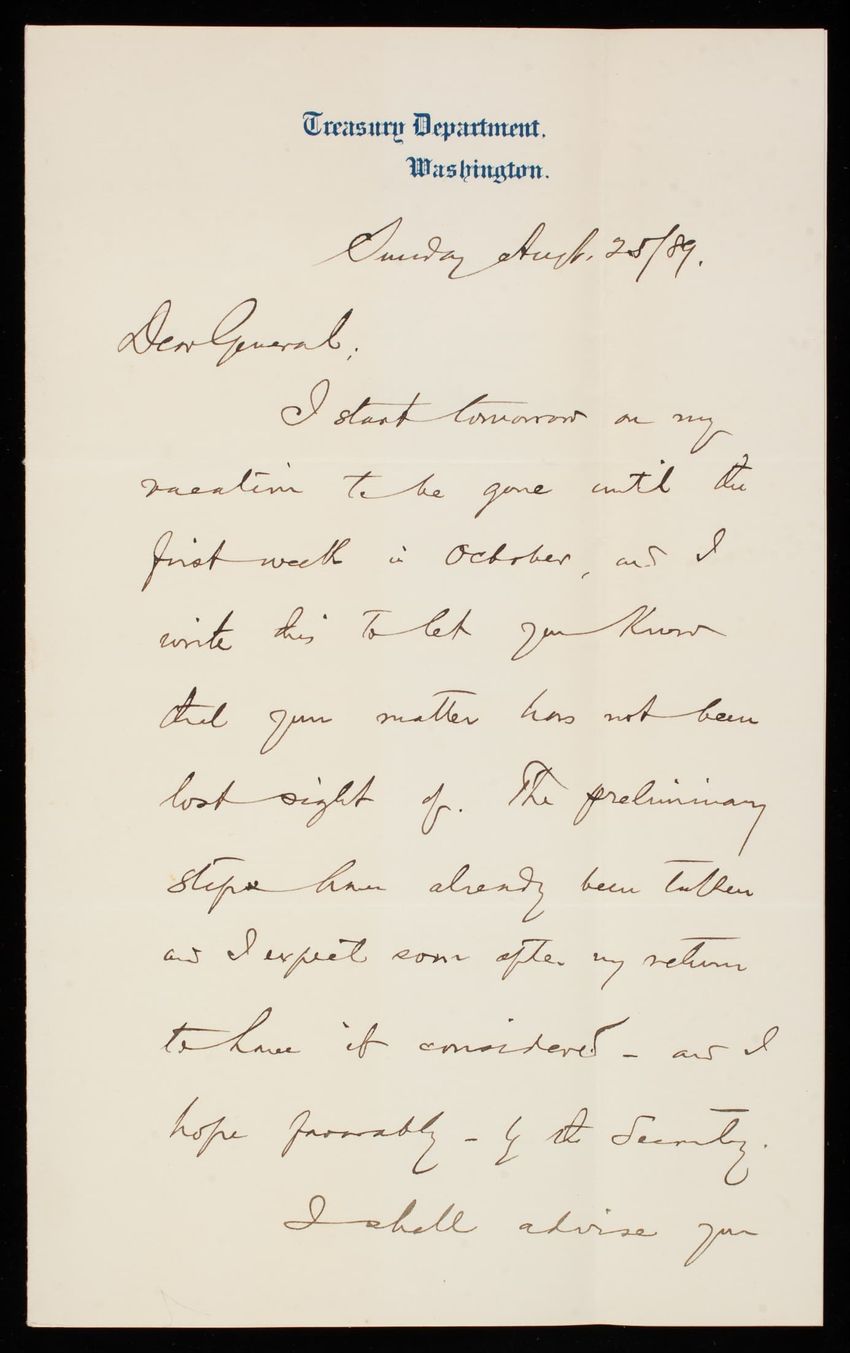 Treasury Department.
Washington.
Sunday Augt. 25/89.
Dear General;
I start tomorrow on my
vacation to be gone until the
first week in October, and I
write this to let you know
that your matter has not been
lost sight of. The preliminary
steps have already been taken
and I expect soon after my return
to have it considered - and I
hope favorably - by the Secretary.
I shall advise you